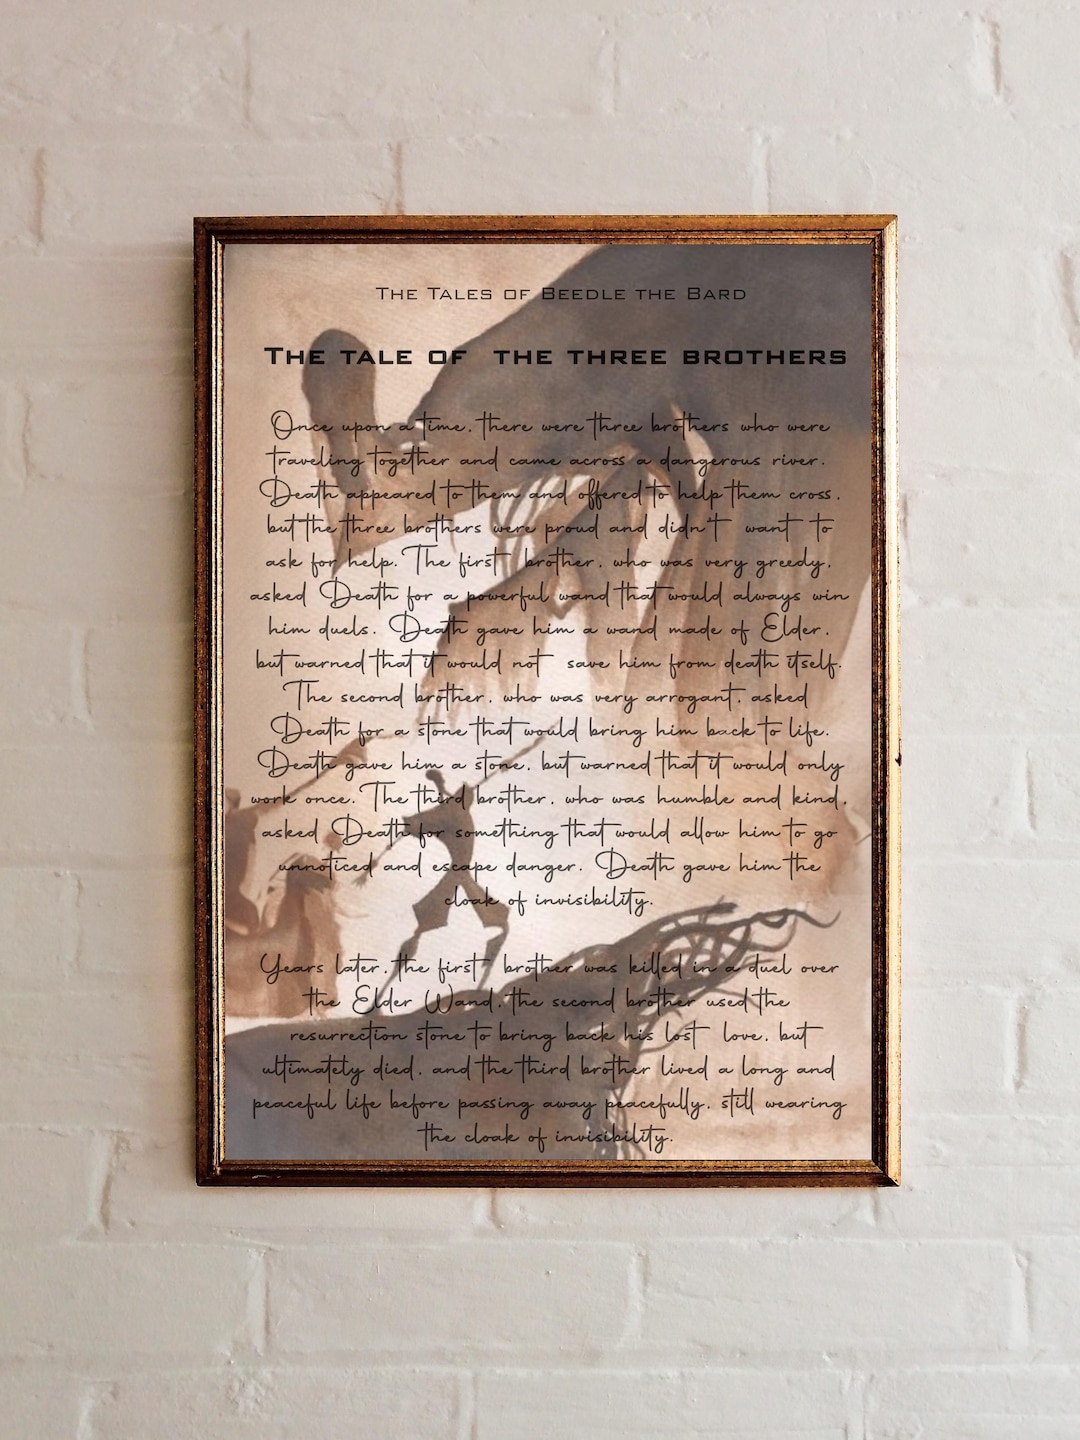 The Tales of Beedle the Bard
The tale of the three brothers
Once upon a time, there were three brothers who were
traveling together and came across a dangerous river.
Death appeared to them and offered to help them cross,
but the three brothers were proud and didn't want to
ask for help. The first brother, who was very greedy,
asked Death for a powerful wand that would always win
him duels. Death gave him a wand made of Elder,
but warned that it would not save him from death itself.
The second brother, who was very arrogant, asked
Death for a stone that would bring him back to life.
Death gave him a stone, but warned that it would only
work once. The third brother, who was humble and kind,
asked Death for something that would allow him to go
unnoticed and escape danger. Death gave him the
cloak of invisibility.
Years later, the first brother was killed in a duel over
the Elder Wand, the second brother used the
resurrection stone to bring back his lost love, but
ultimately died, and the third brother lived a long and
peaceful life before passing away peacefully, still wearing
the cloak of invisibility.